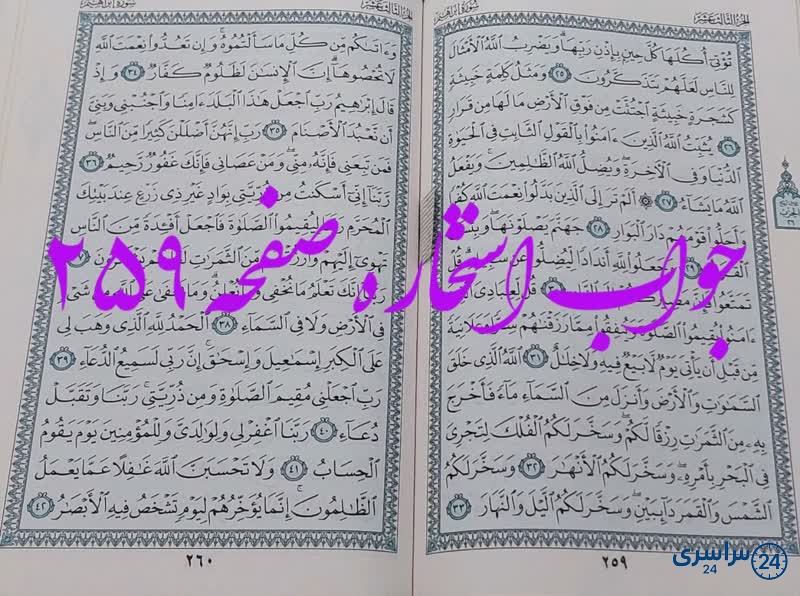 سورة إبراهيم
الجزء الثالث عشر
تُؤْتِىٓ أُكُلَهَا كُلَّ حِينٍۭ بِإِذْنِ رَبِّهَا ۗ وَيَضْرِبُ ٱللَّهُ ٱلْأَمْثَالَ
لِلنَّاسِ لَعَلَّهُمْ يَتَذَكَّرُونَ ٢٥ وَمَثَلُ كَلِمَةٍ خَبِيثَةٍ
كَشَجَرَةٍ خَبِيثَةٍ ٱجْتُثَّتْ مِن فَوْقِ ٱلْأَرْضِ مَا لَهَا مِن قَرَارٍ
٢٦ يُثَبِّتُ ٱللَّهُ ٱلَّذِينَ ءَامَنُوا۟ بِٱلْقَوْلِ ٱلثَّابِتِ فِى ٱلْحَيَوٰةِ
ٱلدُّنْيَا وَفِى ٱلْءَاخِرَةِ ۖ وَيُضِلُّ ٱللَّهُ ٱلظَّٰلِمِينَ ۚ وَيَفْعَلُ
ٱللَّهُ مَا يَشَآءُ ٢٧ ۞ أَلَمْ تَرَ إِلَى ٱلَّذِينَ بَدَّلُوا۟ نِعْمَتَ ٱللَّهِ كُفْرًا
وَأَحَلُّوا۟ قَوْمَهُمْ دَارَ ٱلْبَوَارِ ٢٨ جَهَنَّمَ يَصْلَوْنَهَا ۖ وَبِئْسَ
وَجَعَلُوا۟ لِلَّهِ أَندَادًا لِّيُضِلُّوا۟ عَن سَبِيلِهِۦ ۗ قُلْ
تَمَتَّعُوا۟ فَإِنَّ مَصِيرَكُمْ إِلَى ٱلنَّارِ ٣٠ قُل لِّعِبَادِىَ ٱلَّذِينَ
ءَامَنُوا۟ يُقِيمُوا۟ ٱلصَّلَوٰةَ وَيُنفِقُوا۟ مِمَّا رَزَقْنَٰهُمْ سِرًّا وَعَلَانِيَةً
مِّن قَبْلِ أَن يَأْتِىَ يَوْمٌ لَّا بَيْعٌ فِيهِ وَلَا خِلَٰلٌ ٣١ ٱللَّهُ ٱلَّذِى خَلَقَ
ٱلسَّمَٰوَٰتِ وَٱلْأَرْضَ وَأَنزَلَ مِنَ ٱلسَّمَآءِ مَآءً فَأَخْرَجَ
بِهِۦ مِنَ ٱلثَّمَرَٰتِ رِزْقًا لَّكُمْ ۖ وَسَخَّرَ لَكُمُ ٱلْفُلْكَ لِتَجْرِىَ
فِى ٱلْبَحْرِ بِأَمْرِهِۦ ۖ وَسَخَّرَ لَكُمُ ٱلْأَنْهَٰرَ ٣٢ وَسَخَّرَ لَكُمُ
ٱلشَّمْسَ وَٱلْقَمَرَ دَآئِبَيْنِ ۖ وَسَخَّرَ لَكُمُ ٱلَّيْلَ وَٱلنَّهَارَ ٣٣
٢٥٩
الجزء الثالث عشر
سورة إبراهيم
وَءَاتَىٰكُم مِّن كُلِّ مَا سَأَلْتُمُوهُ ۚ وَإِن تَعُدُّوا۟ نِعْمَتَ ٱللَّهِ
لَا تُحْصُوهَآ ۗ إِنَّ ٱلْإِنسَٰنَ لَظَلُومٌ كَفَّارٌ ٣٤ وَإِذْ
قَالَ إِبْرَٰهِيمُ رَبِّ ٱجْعَلْ هَٰذَا ٱلْبَلَدَ ءَامِنًا وَٱجْنُبْنِى وَبَنِىَّ
أَن نَّعْبُدَ ٱلْأَصْنَامَ ٣٥ رَبِّ إِنَّهُنَّ أَضْلَلْنَ كَثِيرًا مِّنَ ٱلنَّاسِ ۖ
فَمَن تَبِعَنِى فَإِنَّهُۥ مِنِّى ۖ وَمَنْ عَصَانِى فَإِنَّكَ غَفُورٌ رَّحِيمٌ ٣٦
رَّبَّنَآ إِنِّىٓ أَسْكَنتُ مِن ذُرِّيَّتِى بِوَادٍ غَيْرِ ذِى زَرْعٍ عِندَ بَيْتِكَ
ٱلْمُحَرَّمِ رَبَّنَا لِيُقِيمُوا۟ ٱلصَّلَوٰةَ فَٱجْعَلْ أَفْـِٔدَةً مِّنَ ٱلنَّاسِ
تَهْوِىٓ إِلَيْهِمْ وَٱرْزُقْهُم مِّنَ ٱلثَّمَرَٰتِ لَعَلَّهُمْ يَشْكُرُونَ ٣٧
رَبَّنَآ إِنَّكَ تَعْلَمُ مَا نُخْفِى وَمَا نُعْلِنُ ۗ وَمَا يَخْفَىٰ عَلَى ٱللَّهِ مِن شَىْءٍ
فِى ٱلْأَرْضِ وَلَا فِى ٱلسَّمَآءِ ٣٨ ٱلْحَمْدُ لِلَّهِ ٱلَّذِى وَهَبَ لِى
عَلَى ٱلْكِبَرِ إِسْمَٰعِيلَ وَإِسْحَٰقَ ۚ إِنَّ رَبِّى لَسَمِيعُ ٱلدُّعَآءِ ٣٩
رَبِّ ٱجْعَلْنِى مُقِيمَ ٱلصَّلَوٰةِ وَمِن ذُرِّيَّتِى ۚ رَبَّنَا وَتَقَبَّلْ
دُعَآءِ ٤٠ رَبَّنَا ٱغْفِرْ لِى وَلِوَٰلِدَىَّ وَلِلْمُؤْمِنِينَ يَوْمَ يَقُومُ
ٱلْحِسَابُ ٤١ وَلَا تَحْسَبَنَّ ٱللَّهَ غَٰفِلًا عَمَّا يَعْمَلُ
ٱلظَّٰلِمُونَ ۚ إِنَّمَا يُؤَخِّرُهُمْ لِيَوْمٍ تَشْخَصُ فِيهِ ٱلْأَبْصَٰرُ ٤٢
٢٦٠
جواب استخاره صفحه ۲۵۹
سراسری 24
24